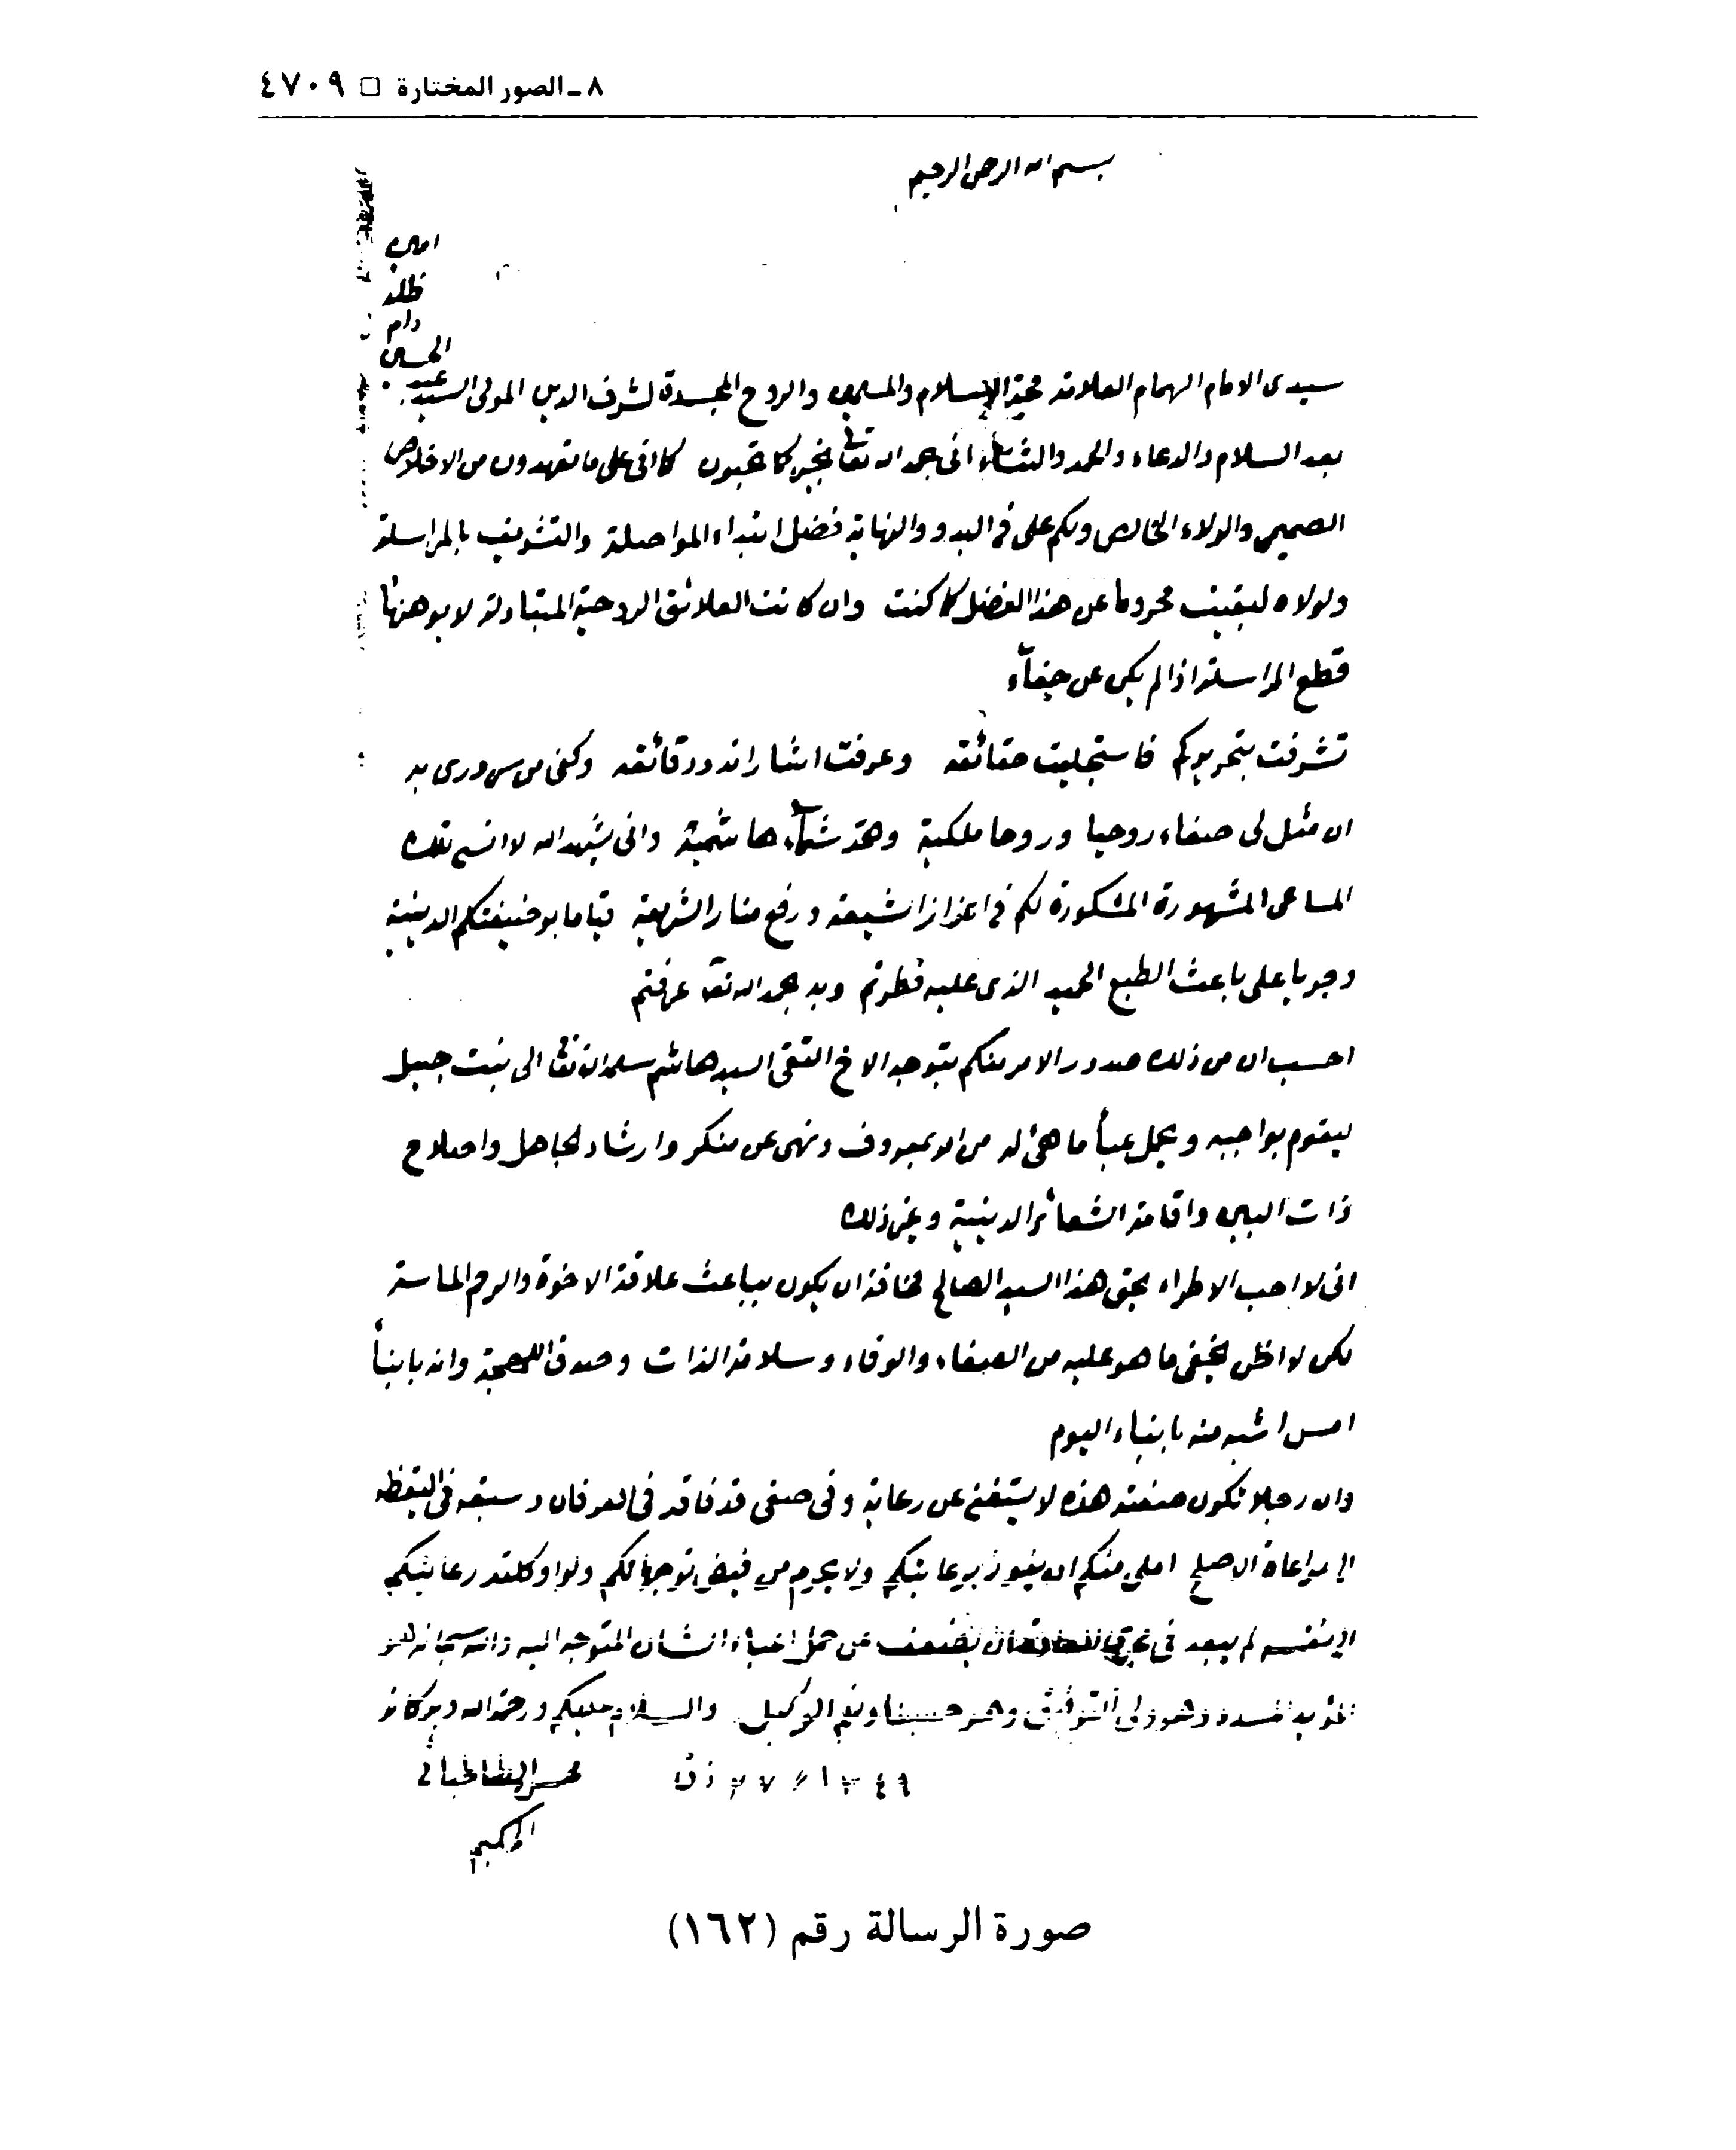 ٨ ـ الصور المختارة □ ٤٧٠٩
بسم الله الرحمن الرحيم
سيدى الامام الهمام العلامة حجة الإسلام والمسلمين والروح المجسدة لشرف الدين المولى السيد عبد
الحسين
دام
ظله
امين
بعد السلام والدعاء والحمد والثناء انى بحمد الله تعالى بخير كما تحبون كما انى على ما تعهدون من الاخلاص
الصميمى والولاء الخالص ولكم على فى البدو والنهاية فضل ابتداء المواصلة والتشريف بالمراسلة
ولولاه لبقيت محروما عن هذا الفضل كما كنت وان كانت العلائق الروحية المتبادلة لا يوهنها
قطع المراسلة اذا لم يكن عن جفاء
تشرفت بتحريركم فاستجليت حقائقه وعرفت اشاراته ورقائقه وكفى من سرورى به
ان مثل لى صفاء روحيا وروحا ملكية وهمة شماء هاشمية وانى يشهد الله لا انسى تلك
المساعى المشهورة المشكورة لكم فى اعزاز الشيعة ورفع منار الشريعة قياما بوضيفتكم الدينية
وجريا على باعث الطبع الحميد الذى عليه فطرتم وبه بحمد الله تعا عرفتم
احسب ان من ذلك صدور الامر منكم بتوجه الاخ التقى السيد هاشم سلمه الله تعالى الى بنت جبيل
ليقوم بواجبه ويحمل عبأ ما هئ له من امر بمعروف ونهى عن منكر وارشاد لجاهل واصلاح
ذات البين واقامة الشعائر الدينية وغير ذلك
انى لا احب الاطراء بحق هذا السيد الصالح لمخافة ان يكون بباعث علاقة الاخوة والرحم الماسة
لكن لا اظن يخفى ما هو عليه من الصفاء والوفاء وسلامة الذات وصدق اللهجة وانه بابناء
امس اشبه منه بابناء اليوم
وان رجلا تكون صفته هذه لا يستغنى عن رعاية وفى صفى قد فاقه فى العرفان وسبقه فى اليقظة
الى مراعاة الاصلح املى منكم ان يفوز برعايتكم ولا يحرم من فيض توجهاتكم ولو اوكلته رعايتكم
الى نفسه لم يبعد فى ان يضعف عن حمل اعباء الشان المتوجه اليه والله سبحانه هو
المؤيد المسدد وهو ولى التوفيق وهو حسبنا ونعم الوكيل والسلام عليكم ورحمة الله وبركاته
٢٧ ذق ١٣٤٩
محسن الطباطبائى
الحكيم
صورة الرسالة رقم (١٦٢)